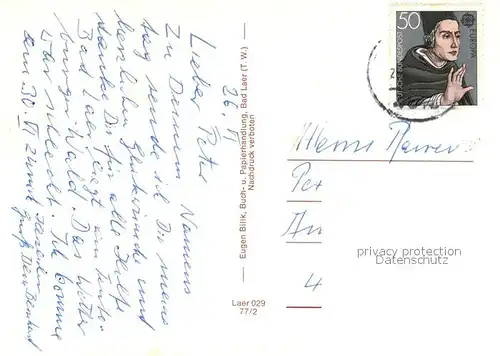 26. VI
Lieber Peter
Zu Deinem Namens
tag sende ich Dir meine
herzlichen Glückwünsche und
danke Dir für alle Hilfe
Bad Laer liegt am Teuto-
burger Wald. Das Wetter
ist schlecht. Ich komme
am 30. VI zurück
Eugen Bilik, Buch- u. Papierhandlung, Bad Laer (T. W.)
Nachdruck verboten
Laer 029
77/2
50
DEUTSCHE BUNDESPOST
EUROPA
Herrn
privacy protection
Datenschutz
4